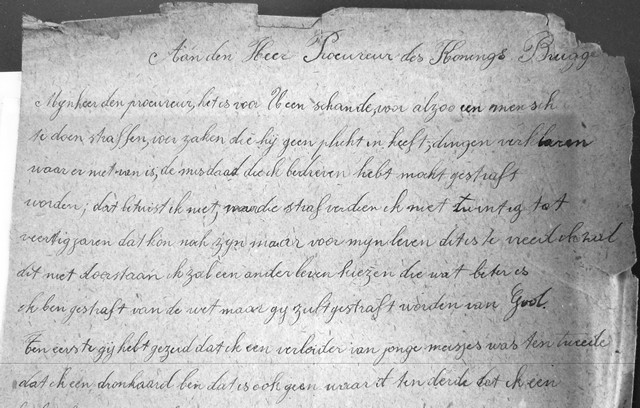 Aan den Heer Procureur des Konings Brugge
Mynheer den procureur, het is voor U een schande, voor alzoo een mensch
te doen straffen, voor zaken die hij geen plicht in heeft, dingen verklaren
waar er niet van is, de misdaad die ik bedreven hebt mocht gestraft
worden; dat betwist ik niet, maar die straf verdien ik niet twintig tot
veertig jaren dat kon nah zyn maar voor myn leven dit is te vreed ik zal
dit niet doorstaan ik zal een ander leven kiezen die wat beter is
ik ben gestraft van de wet maar gy zult gestraft worden van God.
Ten eerste gij hebt gezeid dat ik een verleider van jonge meisjes was ten tweede
dat ik een dronkaard ben dat is ook geen waar it ten derde dat ik een